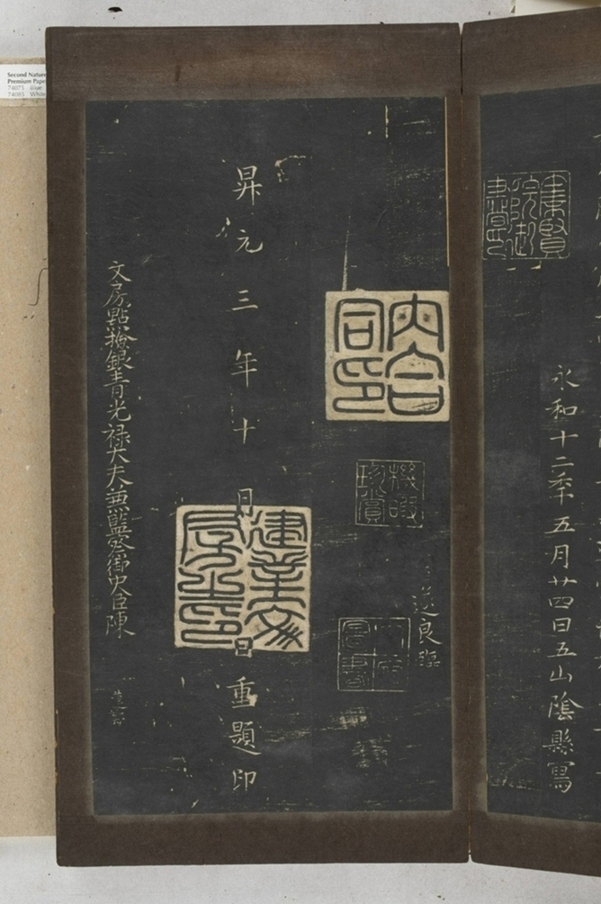 集賢院御書印
永和十二秊五月廿四日五山陰縣寫
內合同印
機暇珍賞
遂良臨
昇元三年十月日重題印
建業文房之印
文房點撿銀青光祿大夫兼監察御史臣陳
Second Nature
Premium Pape